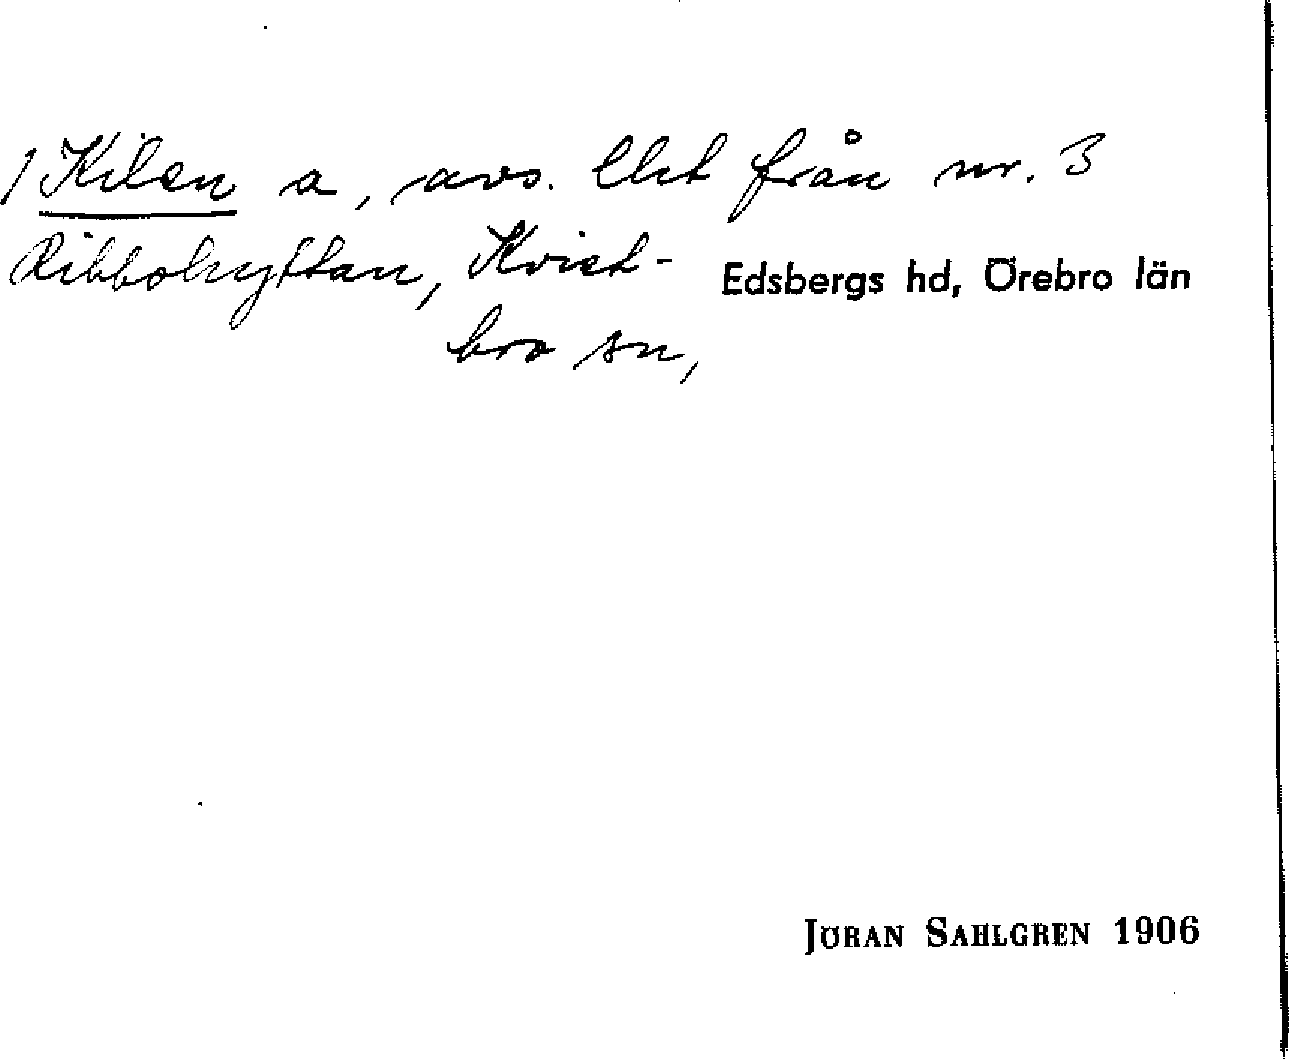 1 Kilen a, avs. lht från nr. 3
Ribbohyttan, Kvist-
Edsbergs hd, Örebro län
bro sn,
JÖRAN SAHLGREN 1906